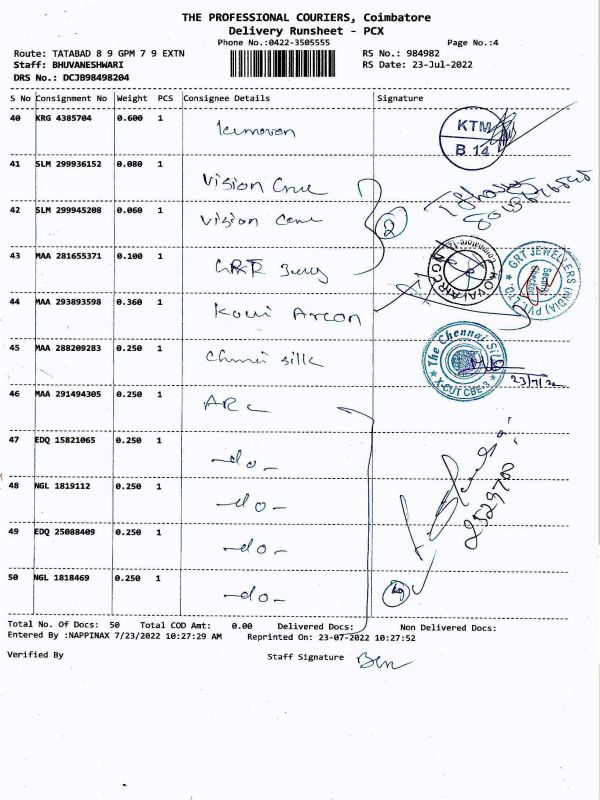 THE PROFESSIONAL COURIERS, Coimbatore
Delivery Runsheet - PCX
Phone No.:0422-3505555
Page No.:4
Route: TATABAD 8 9 GPM 7 9 EXTN
RS No.: 984982
Staff: BHUVANESHWARI
RS Date: 23-Jul-2022
DRS No.: DCJB98498204
S No Consignment No Weight PCS Consignee Details Signature
40 KRG 4385704 0.600 1
KTM
B.14
41 SLM 299936152 0.080 1 Vision
42 SLM 299945208 0.060 1 Vision
2
43 MAA 281655371 0.100 1 GRT
GRT JEWELLERS (INDIA) PVT. LTD.
44 MAA 293893598 0.360 1
45 MAA 288209283 0.250 1 Chennai Silk
The Chennai Silk
X-CUT CBE-3
23/7/22
46 MAA 291494305 0.250 1 ARC
47 EDQ 15821065 0.250 1 -do-
48 NGL 1819112 0.250 1 -do-
2529700
49 EDQ 25088409 0.250 1 -do-
50 NGL 1818469 0.250 1 -do-
Total No. Of Docs: 50 Total COD Amt: 0.00 Delivered Docs: Non Delivered Docs:
Entered By :NAPPINAX 7/23/2022 10:27:29 AM Reprinted On: 23-07-2022 10:27:52
Verified By Staff Signature